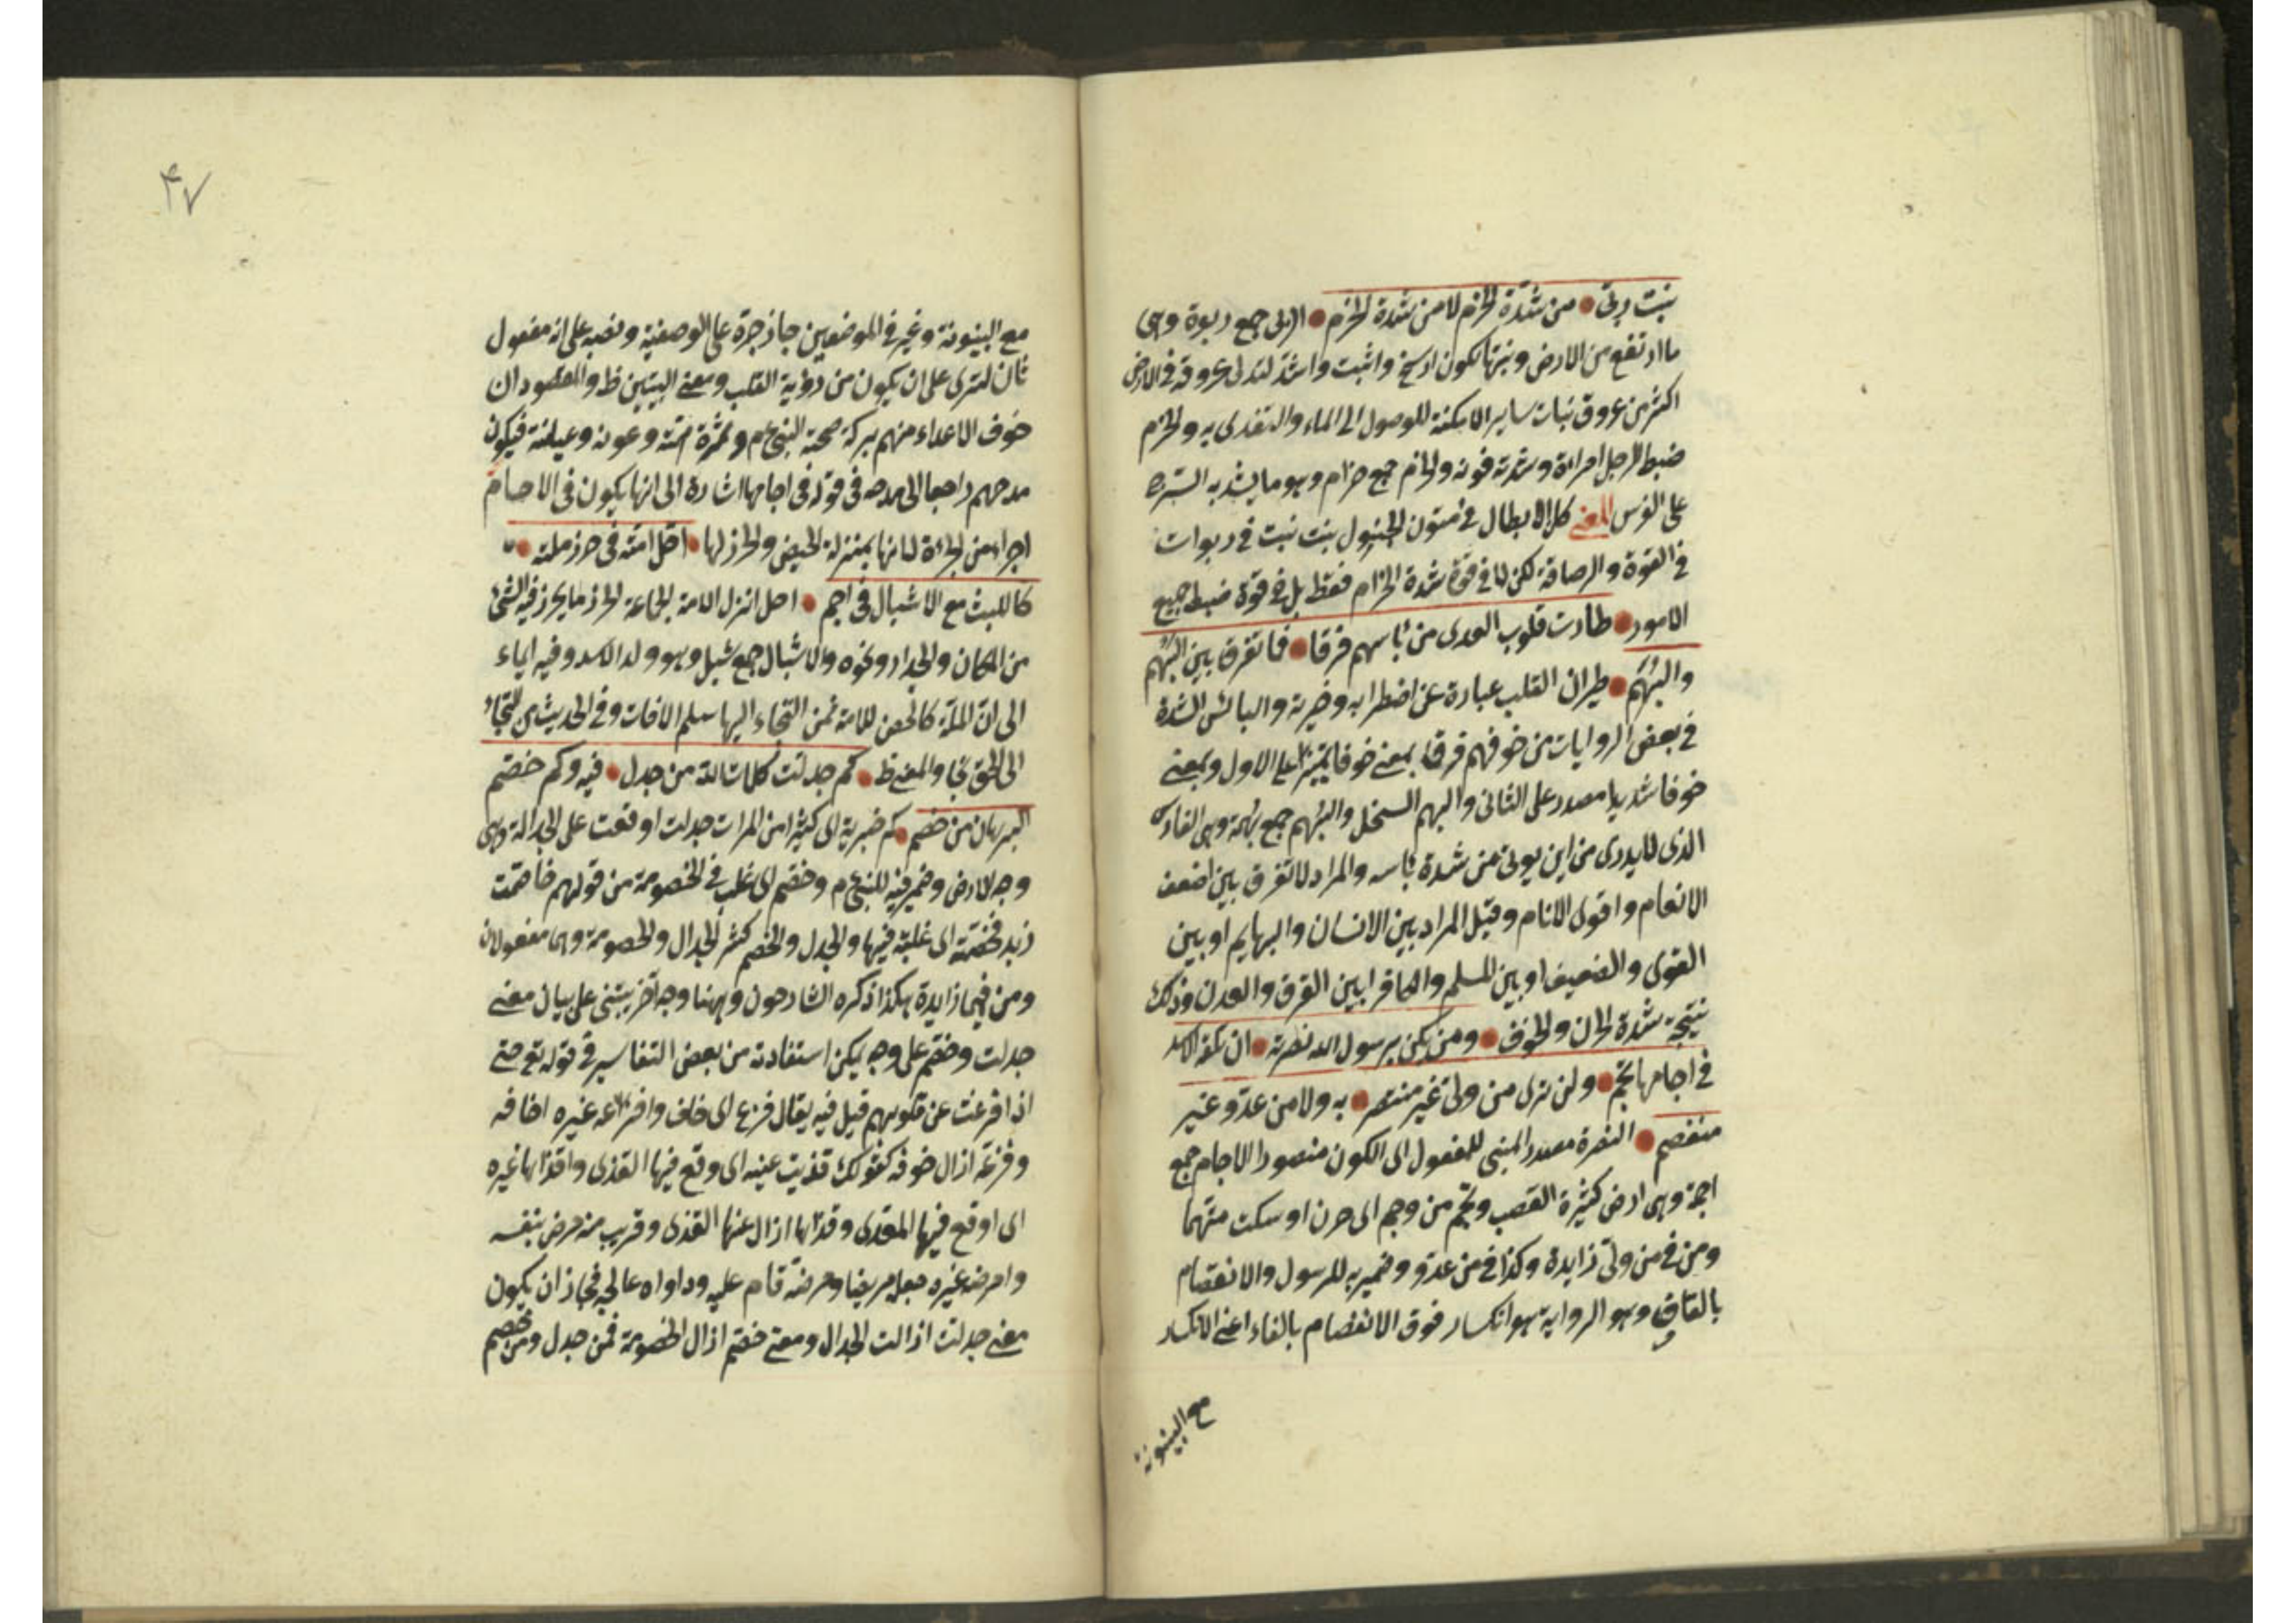 نبت ربى • من شدة الحزم لا من شدة الحزم • الربى جمع ربوة وهى
ما ارتفع من الارض ونبتها يكون ارسخ واثبت واشد لتدلى عروقه فى الارض
اكثر من عروق نبات ساير الامكنة للوصول الى الماء والتغدى به والحزم
ضبط الرجل امراءة وشدته قوته والحزم جمع حزام وهو ما يشد به السرج
على الفرس المعنى كل الابطال فى متون الخيول نبت نبت فى ربوات
فى القوة والرصافة لكن لا فى قوة شدة الحزام فقط بل فى قوة ضبط جميع
الامور • طارت قلوب العدى من بأسهم فرقا • فما تفرق بين البَهم
والبُهَم • طيران القلب عبارة عن اضطرابه وحيرته والبأس الشدة
فى بعض الروايات من خوفهم فرقا بمعنى خوفا تمييزا على الاول وبمعنى
خوفا شديدا مصدر على الثانى والبهم السخل والبُهم جمع بهمة وهى الفارس
الذى لا يدرى من اين يوتى من شدة بأسه والمراد لا تفرق بين اضعف
الانعام واقوى الانام وقيل المراد بين الانسان والبهايم او بين
القوى والضعيف او بين المسلم والكافر ا بين الفرق والعدن وذلك
نتيجة شدة الحزن والخوف • ومن يكن برسول الله نصرته • ان تلقه الاسد
فى اجامها تجم • ولن ترى من ولى غير منتصر • به ولا من عدو غير
منقصم • النصرة مصدر المبنى للمفعول اى الكون منصورا الاجام جمع
اجمة وهى ارض كثيرة القصب وتجم من وجم اى حزن او سكت متهما
ومن فى من ولى زايدة وكذا فى من عدو وضمير به للرسول والانقصام
بالقاف وهو الرواية هو انكسار فوق الانفصام بالفاء اعنى الانكسار
مع البينونة
٤٧
مع البينونة وغير فى الموضعين جاز جره على الوصفية ونصبه على انه مفعول
ثان لترى على ان يكون من رؤية القلب ومعنى البيتين ظ والمقصود ان
خوف الاعداء منهم ببركة صحبة النبى عم وثمرة امته وعونه وعيلته فيكون
مدحهم راجعا الى مدحه فى قوله فى اجامها اشارة الى انها يكون فى الاجام
اجراء من الجراءة لما انها بمنزلة الحيض والحرز لها • احل امته فى حرز ملته •
كالليث مع الاشبال فى اجم • احل انزل الامة الجماعة الحرز ما يحرز فيه الشئ
من المكان والجدار ونحوه والاشبال جمع شبل وهو ولد الاسد وفيه ايماء
الى ان الملة كالحصن للامة فمن التجاء اليها سلم الافات وفى الحديث من التجاء
الى الحق نجا والمعنى ظ • كم جدلت كلمات الله من جدل • فيه وكم خصم
البرهان من خصم • كم خبرية اى كثيرا من المرات جدلت اوقعت على الجدالة وهى
وجه الارض وضمير فيه للنبى عم وخصم اى غلب فى الخصومة من قولهم خاصمت
زيد فخصمته اى غلبته فيها والجدل والخصم كثير الجدال والخصومة وهى مفعولان
ومن فيهما زايدة هكذا ذكره الشارحون وههنا وجه آخر يبتنى على بيان معنى
جدلت وخصم على وجه يمكن استفادته من بعض التفاسير فى قوله تع حتى
اذا فزعت عن قلوبهم قيل فيه يقال فزع اى خاف وافزعه غيره اخافه
وفزعه ازال خوفه كقولك قذيت عينه اى وقع فيها القذى واقذاها غيره
اى اوقع فيها القذى وقذاها ازال عنها القذى وقريب منه مرض بنفسه
وامرضه غيره جعله مريضا ومرضه قام عليه وداواه عالجه فجاز ان يكون
معنى جدلت ازالت الجدال ومعنى خصم ازال الخصومة فمن جدل ومن خصم